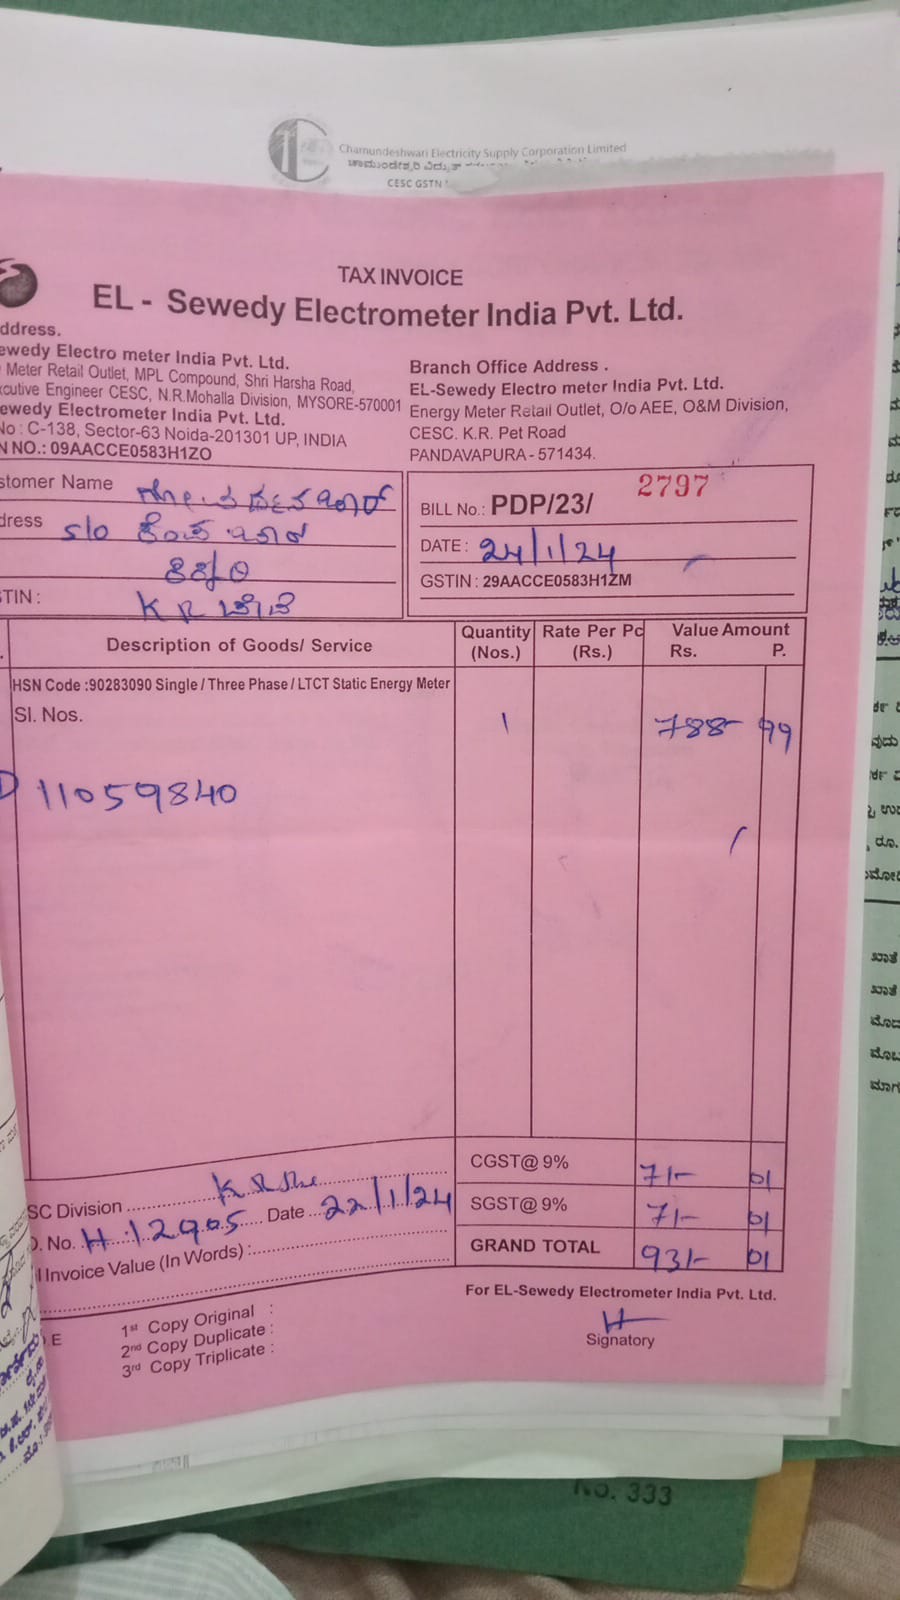 Chamundeshwari Electricity Supply Corporation Limited
ಚಾಮುಂಡೇಶ್ವರಿ ವಿದ್ಯುತ್
CESC GSTN
TAX INVOICE
EL - Sewedy Electrometer India Pvt. Ltd.
ddress.
ewedy Electro meter India Pvt. Ltd.
Meter Retail Outlet, MPL Compound, Shri Harsha Road,
xcutive Engineer CESC, N.R.Mohalla Division, MYSORE-570001
ewedy Electrometer India Pvt. Ltd.
No : C-138, Sector-63 Noida-201301 UP, INDIA
N NO.: 09AACCE0583H1ZO
Branch Office Address .
EL-Sewedy Electro meter India Pvt. Ltd.
Energy Meter Retail Outlet, O/o AEE, O&M Division,
CESC. K.R. Pet Road
PANDAVAPURA - 571434.
stomer Name
dress S/o
TIN : K R ಪೇಟೆ
BILL No.: PDP/23/ 2797
DATE : 24/1/24
GSTIN : 29AACCE0583H1ZM
Description of Goods/ Service Quantity (Nos.) Rate Per Pc (Rs.) Value Amount Rs. P.
HSN Code :90283090 Single / Three Phase / LTCT Static Energy Meter
Sl. Nos. 1 788- 99
11059840
CGST@ 9% 71/- 01
SGST@ 9% 71/- 01
GRAND TOTAL 931/- 01
SC Division
D. No. H:12905 Date 22/1/24
l Invoice Value (In Words) :
For EL-Sewedy Electrometer India Pvt. Ltd.
Signatory
E
1st Copy Original :
2nd Copy Duplicate :
3rd Copy Triplicate :
No. 333